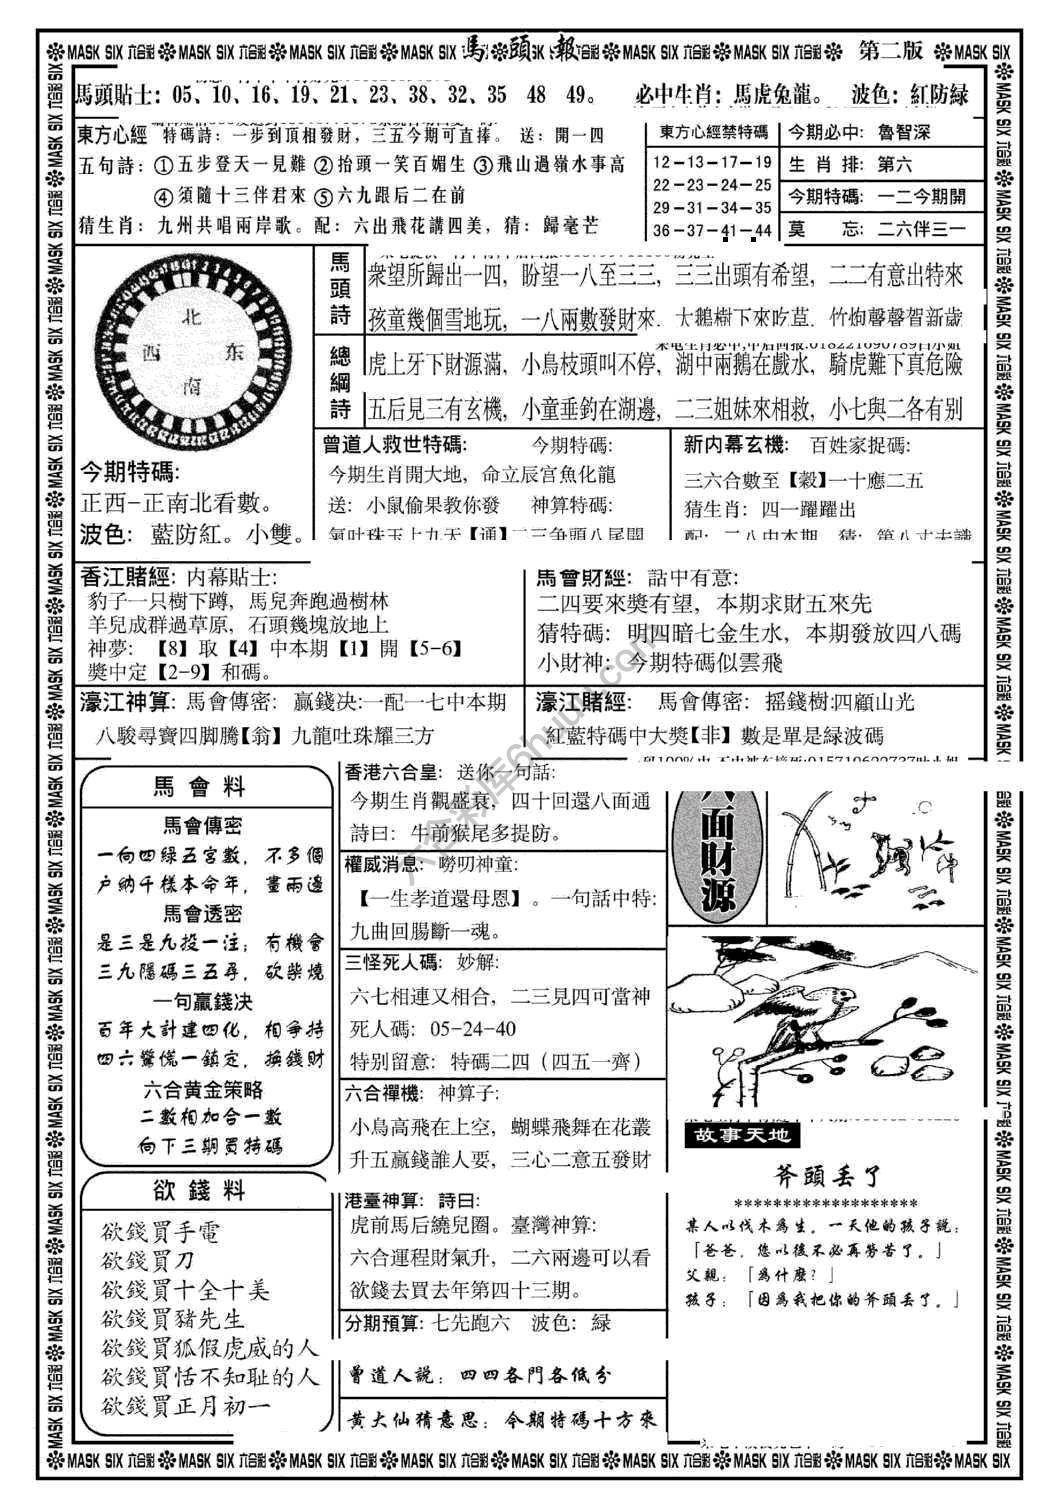 MASK SIX 六合彩 MASK SIX 六合彩 MASK SIX 六合彩 MASK SIX 馬頭報 六合彩 MASK SIX 六合彩 MASK SIX 六合彩 第二版 MASK SIX
馬頭貼士：05、10、16、19、21、23、38、32、35 48 49。 必中生肖：馬虎兔龍。 波色：紅防緑
東方心經 特碼詩：一步到頂相發財，三五今期可直捧。 送：開一四
五句詩：①五步登天一見難 ②抬頭一笑百媚生 ③飛山過嶺水事高
④須隨十三伴君來 ⑤六九跟后二在前
猜生肖：九州共唱兩岸歌。配：六出飛花講四美，猜：歸毫芒
東方心經禁特碼
12－13－17－19
22－23－24－25
29－31－34－35
36－37－41－44
今期必中：魯智深
生肖排：第六
今期特碼：一二今期開
莫忘：二六伴三一
北
西 东
南
今期特碼:
正西-正南北看數。
波色：藍防紅。小雙。
馬頭詩
衆望所歸出一四，盼望一八至三三，三三出頭有希望，二二有意出特來
孩童幾個雪地玩，一八兩數發財來，大鵝樹下來吃草，竹炮聲聲賀新歲
總綱詩
虎上牙下財源滿，小鳥枝頭叫不停，湖中兩鵝在戲水，騎虎難下真危險
五后見三有玄機，小童垂釣在湖邊，二三姐妹來相救，小七與二各有别
曾道人救世特碼: 今期特碼:
今期生肖開大地，命立辰宫魚化龍
送：小鼠偷果教你發 神算特碼:
氣吐珠玉上九天【通】二三争頭八尾開
新内幕玄機: 百姓家捉碼:
三六合數至【穀】一十應二五
猜生肖：四一躍躍出
配：二八中本期 猜：第八丈夫識
香江賭經: 内幕貼士:
豹子一只樹下蹲，馬兒奔跑過樹林
羊兒成群過草原，石頭幾塊放地上
神夢:【8】取【4】中本期【1】開【5-6】
獎中定【2-9】和碼。
馬會財經: 話中有意:
二四要來獎有望，本期求財五來先
猜特碼：明四暗七金生水，本期發放四八碼
小財神：今期特碼似雲飛
濠江神算: 馬會傳密：贏錢决:一配一七中本期
八駿尋寶四脚騰【翁】九龍吐珠耀三方
濠江賭經: 馬會傳密：摇錢樹:四顧山光
紅藍特碼中大獎【非】數是單是緑波碼
馬會料
馬會傳密
一向四緑五宫數，不多個
户納千樣本命年，畫兩邊
馬會透密
是三是九投一注；有機會
三九隱碼三五尋，砍柴燒
一句贏錢决
百年大計建四化，相争持
四六驚慌一鎮定，换錢財
六合黄金策略
二數相加合一數
向下三期買特碼
欲錢料
欲錢買手電
欲錢買刀
欲錢買十全十美
欲錢買豬先生
欲錢買狐假虎威的人
欲錢買恬不知耻的人
欲錢買正月初一
香港六合皇: 送你一句話:
今期生肖觀盛衰，四十回還八面通
詩曰：牛前猴尾多提防。
權威消息: 嘮叨神童:
【一生孝道還母恩】。一句話中特:
九曲回腸斷一魂。
三怪死人碼: 妙解:
六七相連又相合，二三見四可當神
死人碼：05-24-40
特别留意：特碼二四（四五一齊）
六合禪機: 神算子:
小鳥高飛在上空，蝴蝶飛舞在花叢
升五贏錢誰人要，三心二意五發財
港臺神算: 詩曰:
虎前馬后繞兒圈。臺灣神算:
六合運程財氣升，二六兩邊可以看
欲錢去買去年第四十三期。
分期預算: 七先跑六 波色：緑
曾道人説：四四各門各低分
黄大仙猜意思：今期特碼十方來
八面財源
故事天地
斧頭丢了
*******************
某人以伐木爲生。一天他的孩子説：
「爸爸，您以後不必再勞苦了。」
父親：「爲什麽？」
孩子：「因爲我把你的斧頭丢了。」
MASK SIX 六合彩 MASK SIX 六合彩 MASK SIX 六合彩 MASK SIX 六合彩 MASK SIX 六合彩 MASK SIX 六合彩 MASK SIX 六合彩 MASK SIX 六合彩 MASK SIX